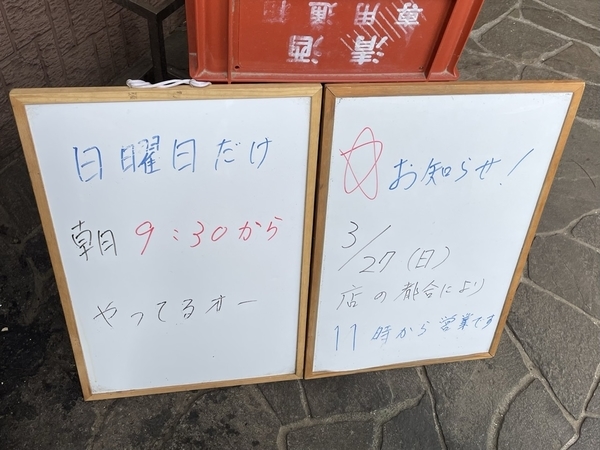 清酒
専用通
日曜日だけ
朝 9:30から
やってるオー
お知らせ!
3/27(日)
店の都合により
11時から営業です